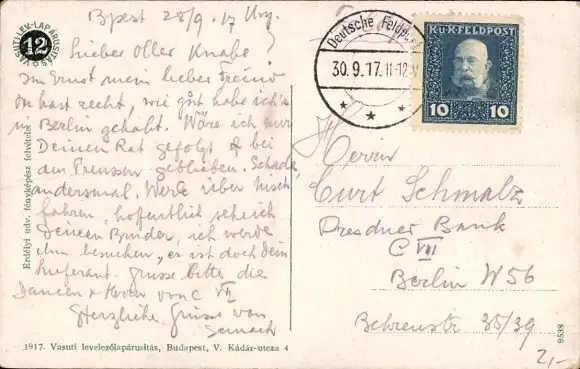 VASUTI LEV.-LAPÁRUSITÁS
12
Bpest 28/9. 17
Lieber oller Knabe!
Im Ernst mein lieber Freund
du hast recht, wie gut habe ich's
in Berlin gehabt. Wäre ich nur
Deinem Rat gefolgt & bei
den Preussen geblieben. Schade,
andersmal. Werde über
fahren, hoffentlich sehe ich
Deinen Bruder, ich werde
ihn besuchen, er ist doch dein
Grüsse bitte die
Damen & Herren von C VII
Herzliche Grüsse von
Erdélyi udv. fényképész felvétele
1917. Vasuti levelezőlapárusitás, Budapest, V. Kádár-utcza 4
Deutsche Feldpost
30.9.17. 11-12 V
K.u.K. FELDPOST
10 10
Herrn
Curt Schmalz
Dresdner Bank
C VII
Berlin W 56
Behrenstr 35/39
9538
2,-